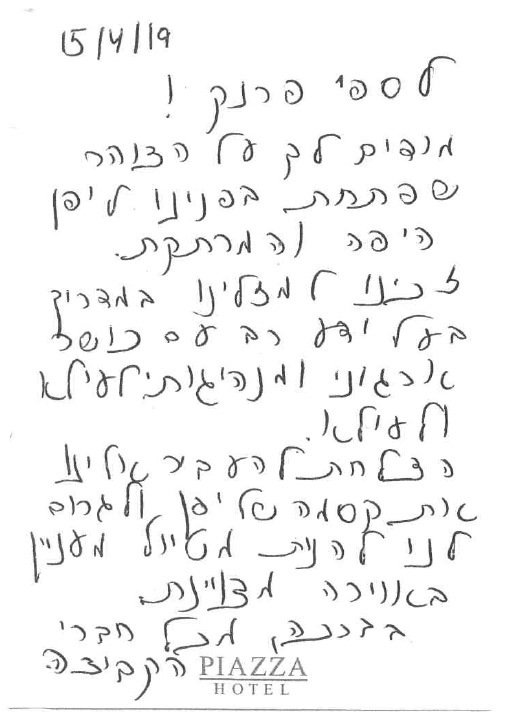 15/4/19
לספי פרנק !
מודים לך על הצוהר
שפתחת בפנינו ליפן
היפה והמרתקת.
זכינו למזלינו במדריך
בעל ידע רב עם כושר
ארגוני ומנהיגותי לעילא
ולעילא.
הצלחת להעביר אלינו
את קסמה של יפן ולגרום
לנו להנות מטיול מעניין
באווירה מצויינת.
בברכה, מכל חברי
הקבוצה.
PIAZZA
HOTEL